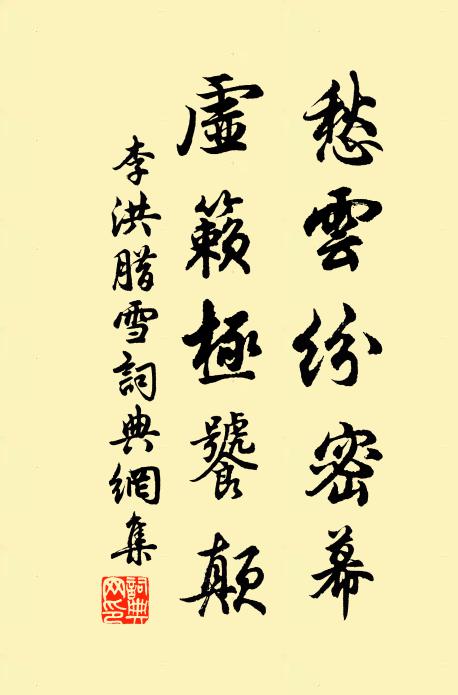 愁雲紛密幕
虛籟極饕顛
李洪腊雪詞典網集
詞典網印